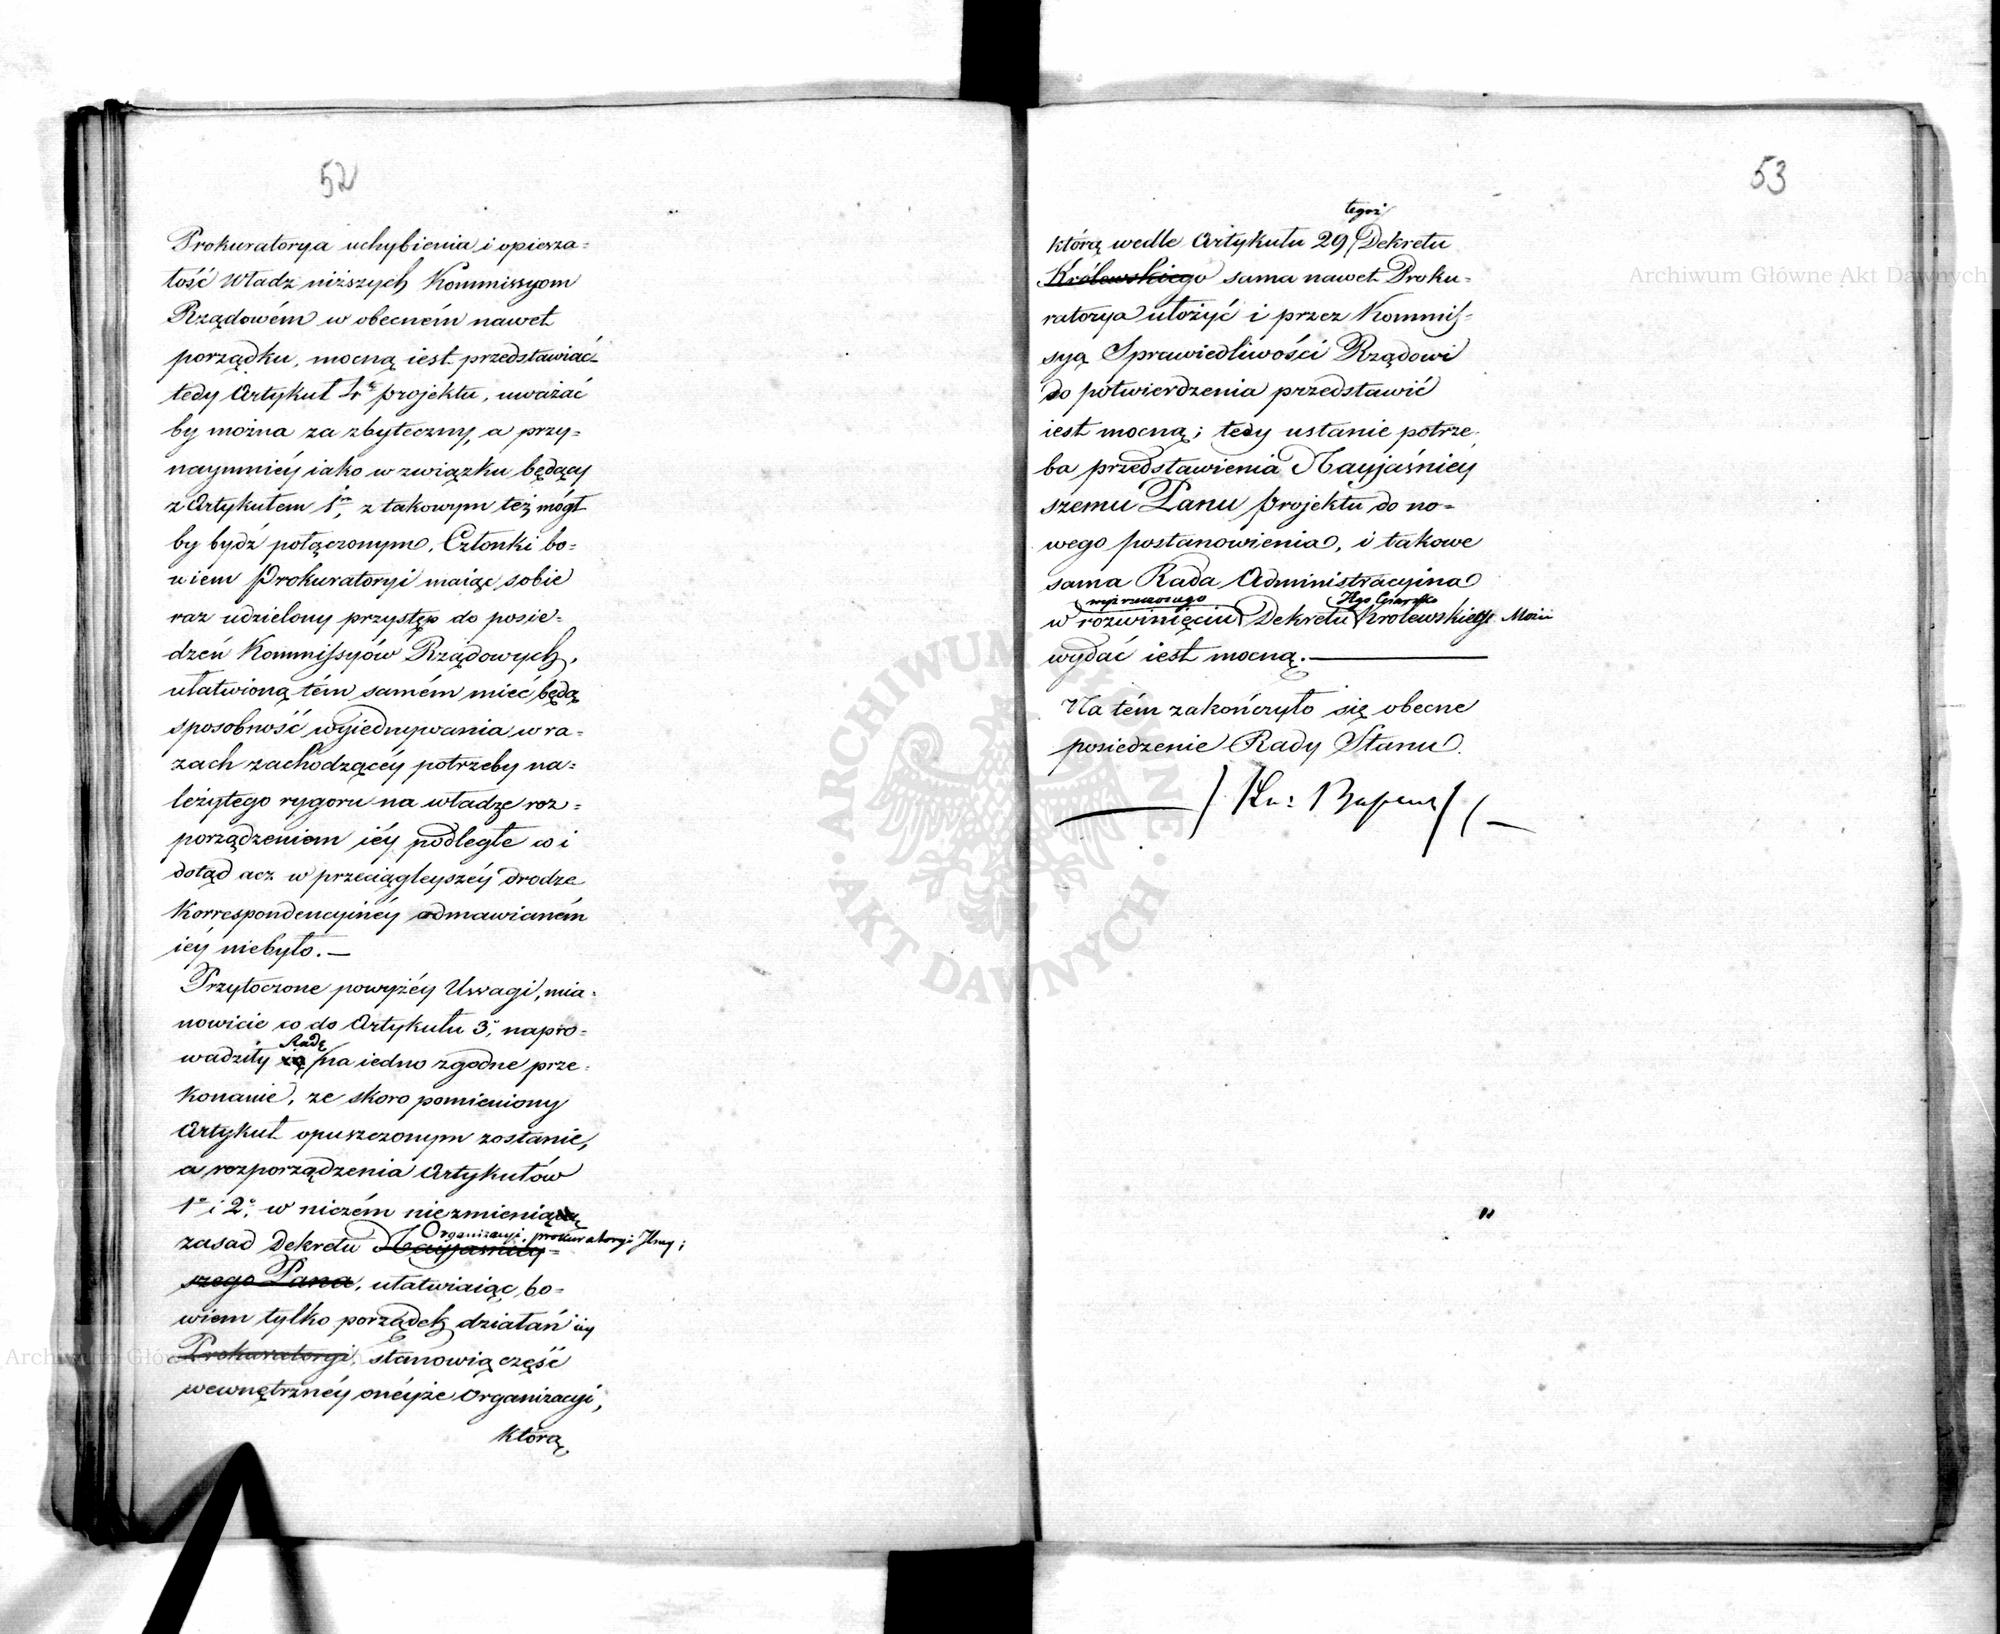 52
Prokuratorya uchybienia i opiesza=
łość Władz niższych Kommissyom
Rządowém w obecném nawet
porządku, mocną iest przedstawiać
tedy Artykuł 4ty projektu, uważać
by można za zbyteczny, a przy=
naymniéy iako w związku będący
z Artykułem 1m, z takowym też mógł
by bydź połączonym. Członki bo=
wiem Prokuratoryi maiąc sobie
raz udzielony przystęp do posie=
dzeń Kommissyów Rządowych,
ułatwioną tém samém mieć będą
sposobność wyiednywania w ra=
zach zachodzącéy potrzeby na=
leżytego rygoru na władze roz=
porządzeniom iéy podległe co i
dotąd acz w przeciągleyszéy drodze
Korrespondencyinéy odmawianém
iéy niebyło. —
Przytoczone powyżéy Uwagi, mia=
nowicie co do Artykułu 3o, napro=
Radę
wadziły ią na iedno zgodne prze=
konanie, że skoro pomieniony
Artykuł opuszczonym zostanie,
a rozporządzenia Artykułów
1o i 2o, w niczém niezmieniaią
Organizacyi prokuratoryi Jlney;
zasad Dekretu Nayjaśniéy=
szego Pana, ułatwiaiąc bo=
wiem tylko porządek działań iéy
Prokuratoryi, stanowią część
wewnętrznéy onéyże Organizacyi,
którą
53
tegoż
którą wedle Artykułu 29 Dekretu
Królewskiego sama nawet Proku=
ratorya ułożyć i przez Kommis=
syą Sprawiedliwości Rządowi
do potwierdzenia przedstawić
iest mocną; tedy ustanie potrze=
ba przedstawienia Nayjaśniéy
szemu Panu projektu do no=
wego postanowienia, i takowe
sama Rada Administracyina
wyżrzeczonego Jgo Cesarsko
w rozwinięciu Dekretu Królewskiéy Mości
wydać iest mocną. —
Na tém zakończyło się obecne
posiedzenie Rady Stanu.
Archiwum Główne Akt Dawnych
Archiwum Główne
ARCHIWUM GŁÓWNE · AKT DAWNYCH ·